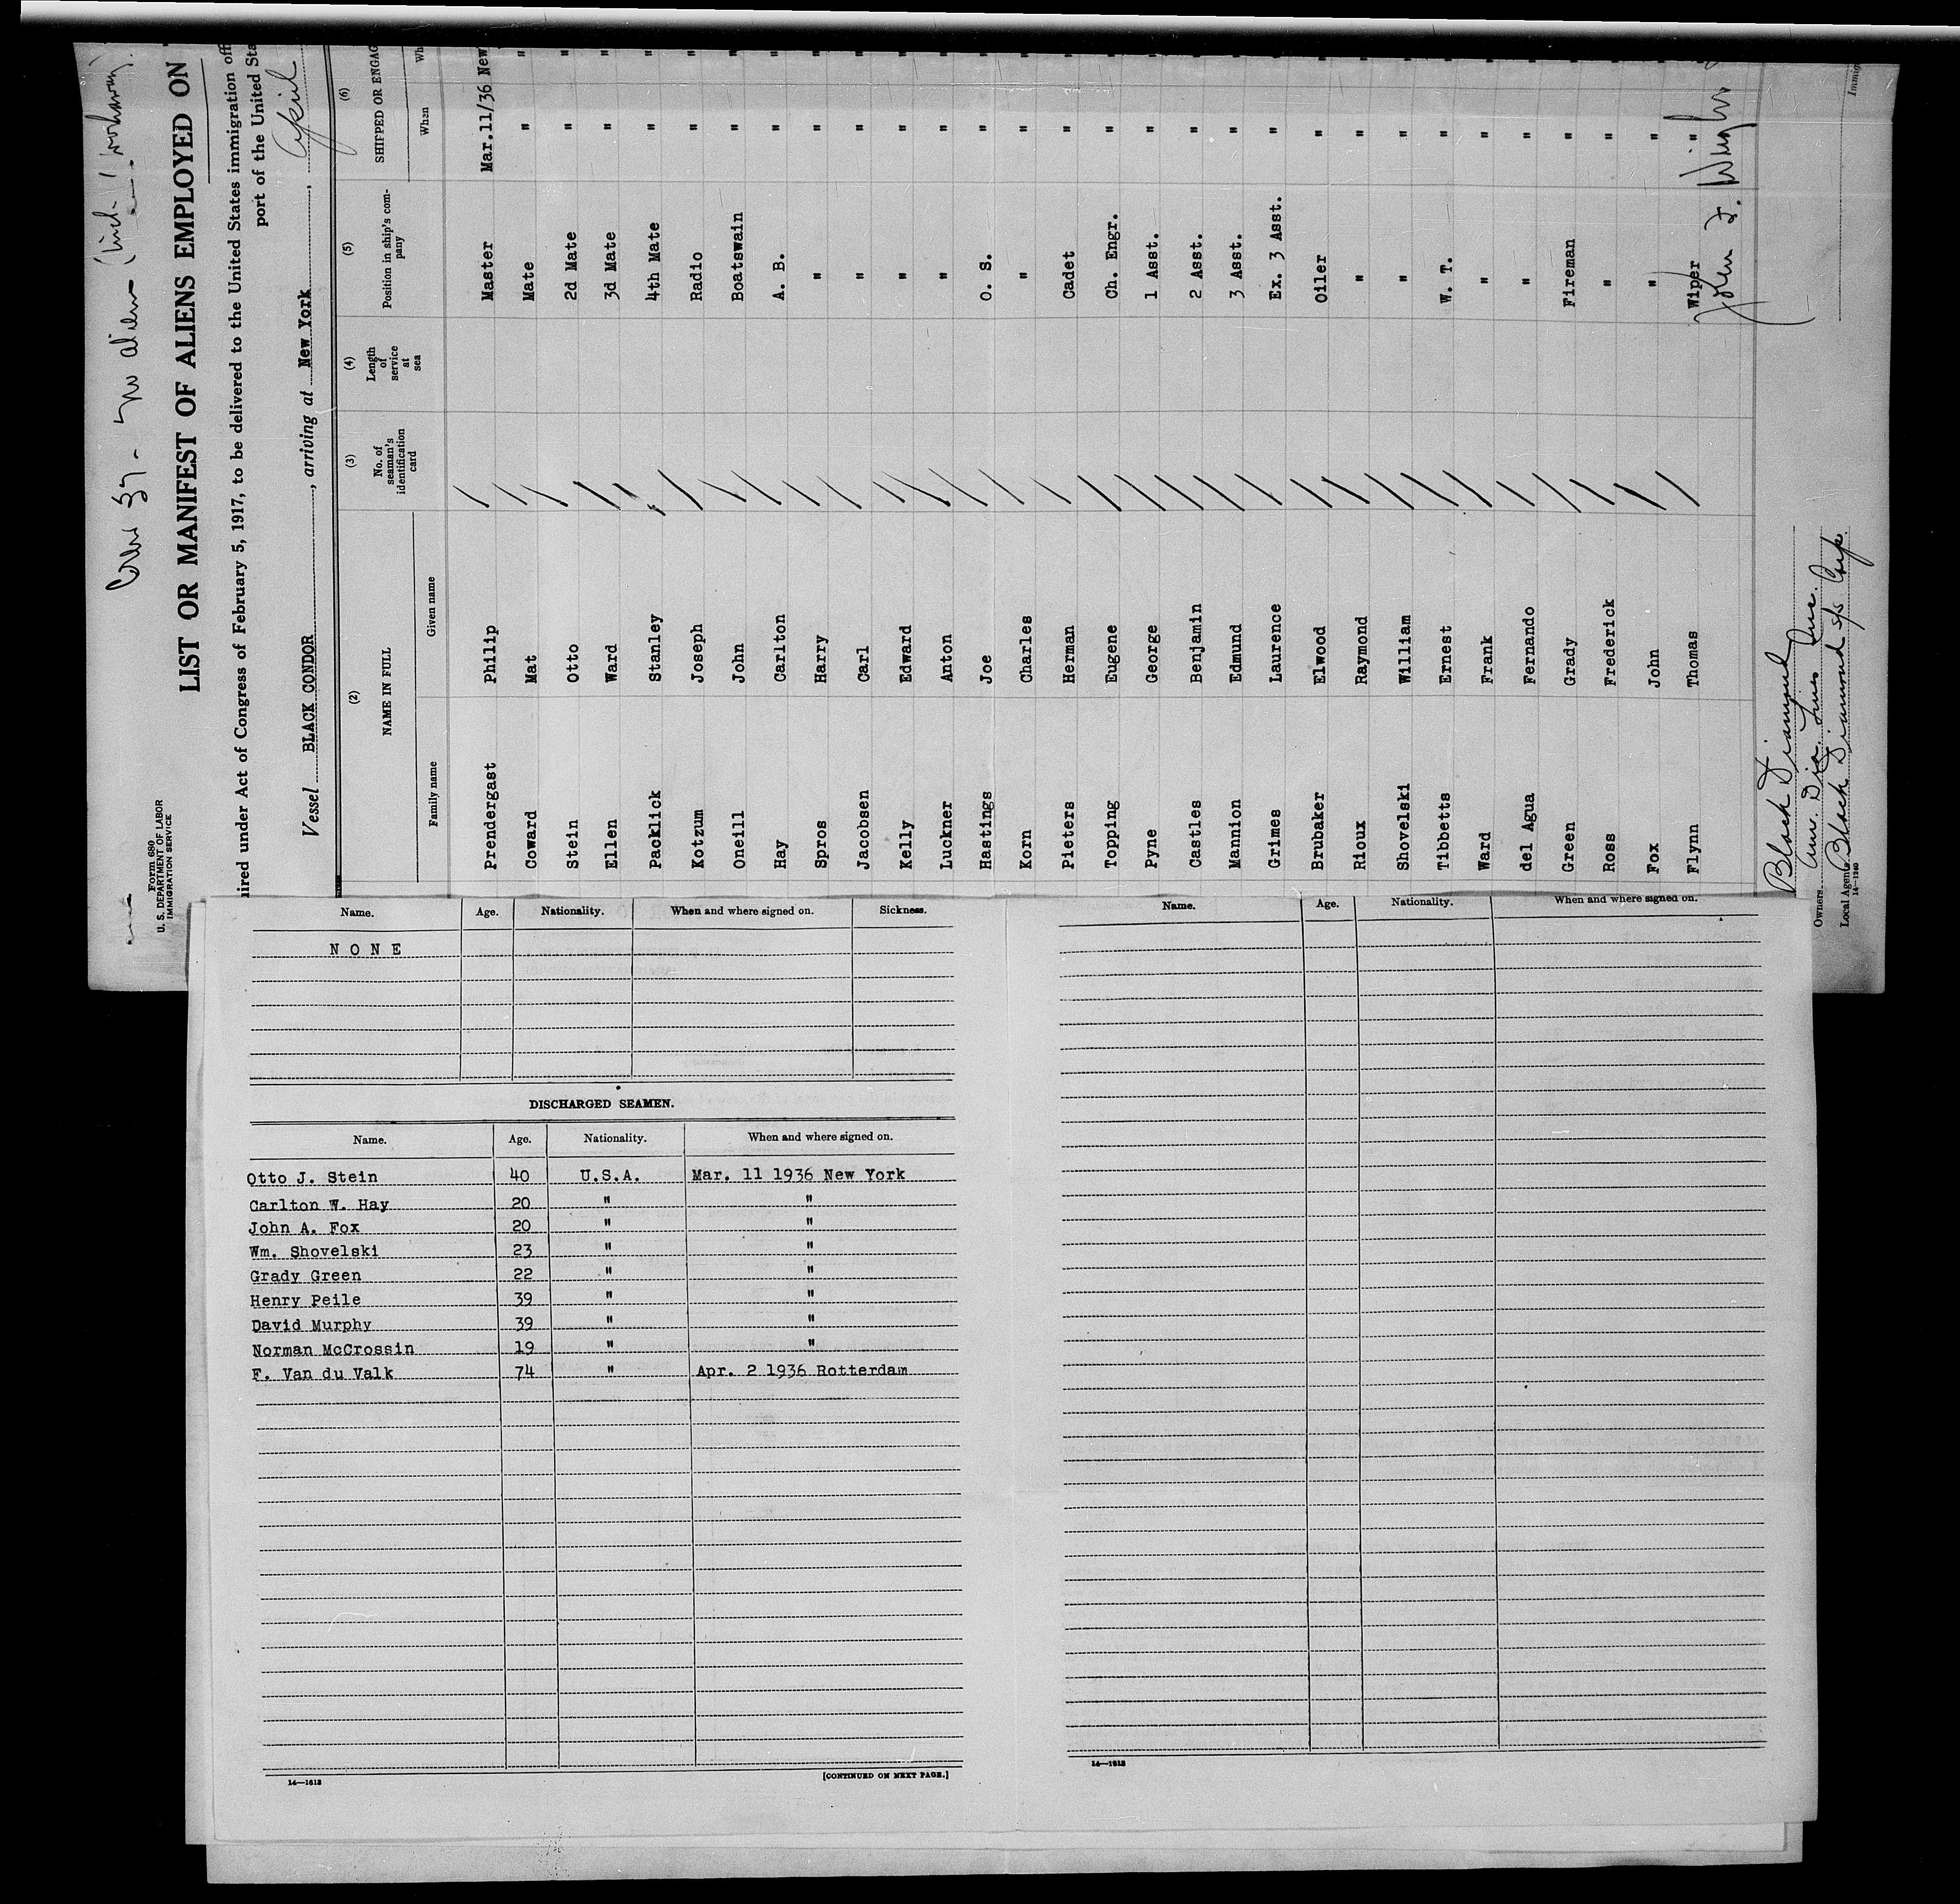 Crew 37 - no aliens (Incl. 1 workaway)
Form 680
U. S. DEPARTMENT OF LABOR
IMMIGRATION SERVICE
LIST OR MANIFEST OF ALIENS EMPLOYED ON
ired under Act of Congress of February 5, 1917, to be delivered to the United States immigration off
port of the United Sta
Vessel BLACK CONDOR, arriving at New York, April
(2) (3) (4) (5) (6)
NAME IN FULL No. of seaman's identification card Length of service at sea Position in ship's company SHIPPED OR ENGAG
Family name Given name When Wh
Prendergast Philip Master Mar.11/36 New
Coward Mat Mate " "
Stein Otto 2d Mate " "
Ellen Ward 3d Mate " "
Packlick Stanley 4th Mate " "
Kotzum Joseph Radio " "
Oneill John Boatswain " "
Hay Carlton A. B. " "
Spros Harry " " "
Jacobsen Carl " " "
Kelly Edward " " "
Luckner Anton " " "
Hastings Joe O. S. " "
Korn Charles " " "
Pieters Herman Cadet " "
Topping Eugene Ch. Engr. " "
Pyne George 1 Asst. " "
Castles Benjamin 2 Asst. " "
Mannion Edmund 3 Asst. " "
Grimes Laurence Ex. 3 Asst. " "
Brubaker Elwood Oiler " "
Rioux Raymond " " "
Shovelski William " " "
Tibbetts Ernest W. T. " "
Ward Frank " " "
del Agua Fernando " " "
Green Grady Fireman " "
Ross Frederick " " "
Fox John " " "
Flynn Thomas Wiper " "
John J.
Black Diamond
Owners Am. Dia. Lines Inc.
Local Agents Black Diamond S/S Corp.
14—1240
Immig
Name. Age. Nationality. When and where signed on. Sickness.
NONE
DISCHARGED SEAMEN.
Name. Age. Nationality. When and where signed on.
Otto J. Stein 40 U.S.A. Mar. 11 1936 New York
Carlton W. Hay 20 " "
John A. Fox 20 " "
Wm. Shovelski 23 " "
Grady Green 22 " "
Henry Peile 39 " "
David Murphy 39 " "
Norman McCrossin 19 " "
F. Van du Valk 74 " Apr. 2 1936 Rotterdam
14—1613
[CONTINUED ON NEXT PAGE.]
Name. Age. Nationality. When and where signed on.
14—1613